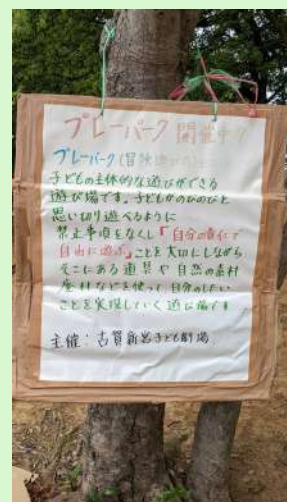 プレーパーク開催中
プレーパーク(冒険遊び場)
子どもの主体的な遊びができる
遊び場です。子どもがのびのびと
思い切り遊べるように
禁止事項をなくし「自分の責任で
自由に遊ぶ」ことを大切にしながら
そこにある道具や自然の素材
廃材などを使って、自分のしたい
ことを実現していく遊び場です
主催:古賀新宮子ども劇場